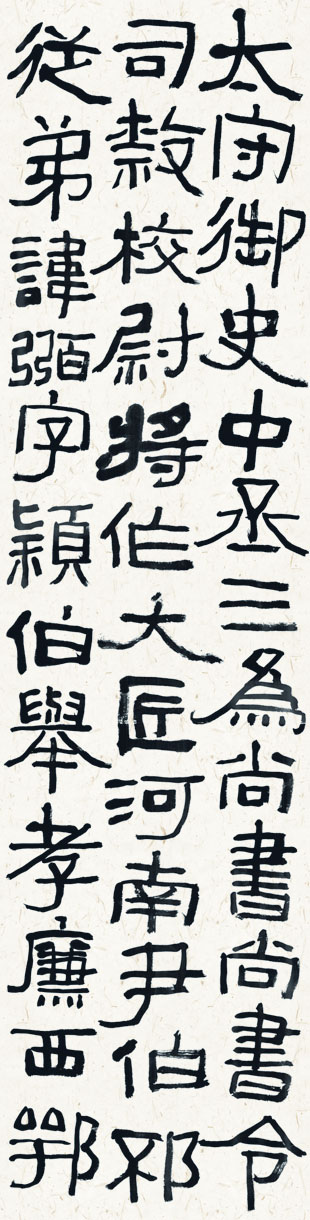 太守御史中丞三為尚書尚書令
司隸校尉將作大匠河南尹伯邳
從弟諱弼字穎伯舉孝廉西鄂